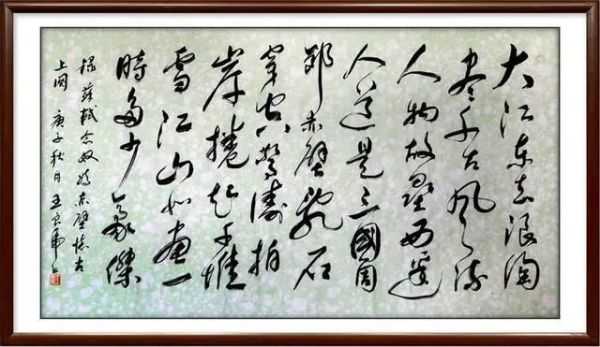 大江东去浪淘
尽千古风流
人物故垒西边
人道是三國周
郎赤壁乱石
穿空惊涛拍
岸捲起千堆
雪江山如画一
時多少豪傑
录苏轼念奴娇赤壁怀古
上阕 庚子秋月 王